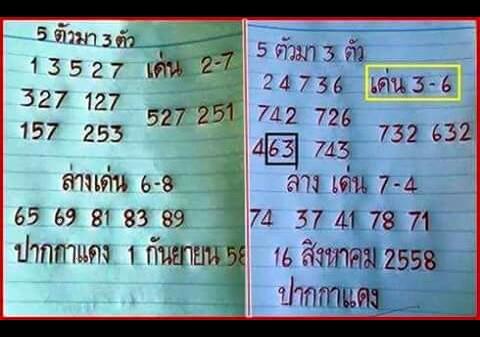 5 ตัวมา 3 ตัว
1 3 5 2 7 เด่น 2-7
327 127
527 251
157 253
ล่างเด่น 6-8
65 69 81 83 89
ปากกาแดง 1 กันยายน 58
5 ตัวมา 3 ตัว
2 4 7 3 6 เด่น 3-6
742 726
732 632
463 743
ลาง เด่น 7-4
74 37 41 78 71
16 สิงหาคม 2558
ปากกาแดง